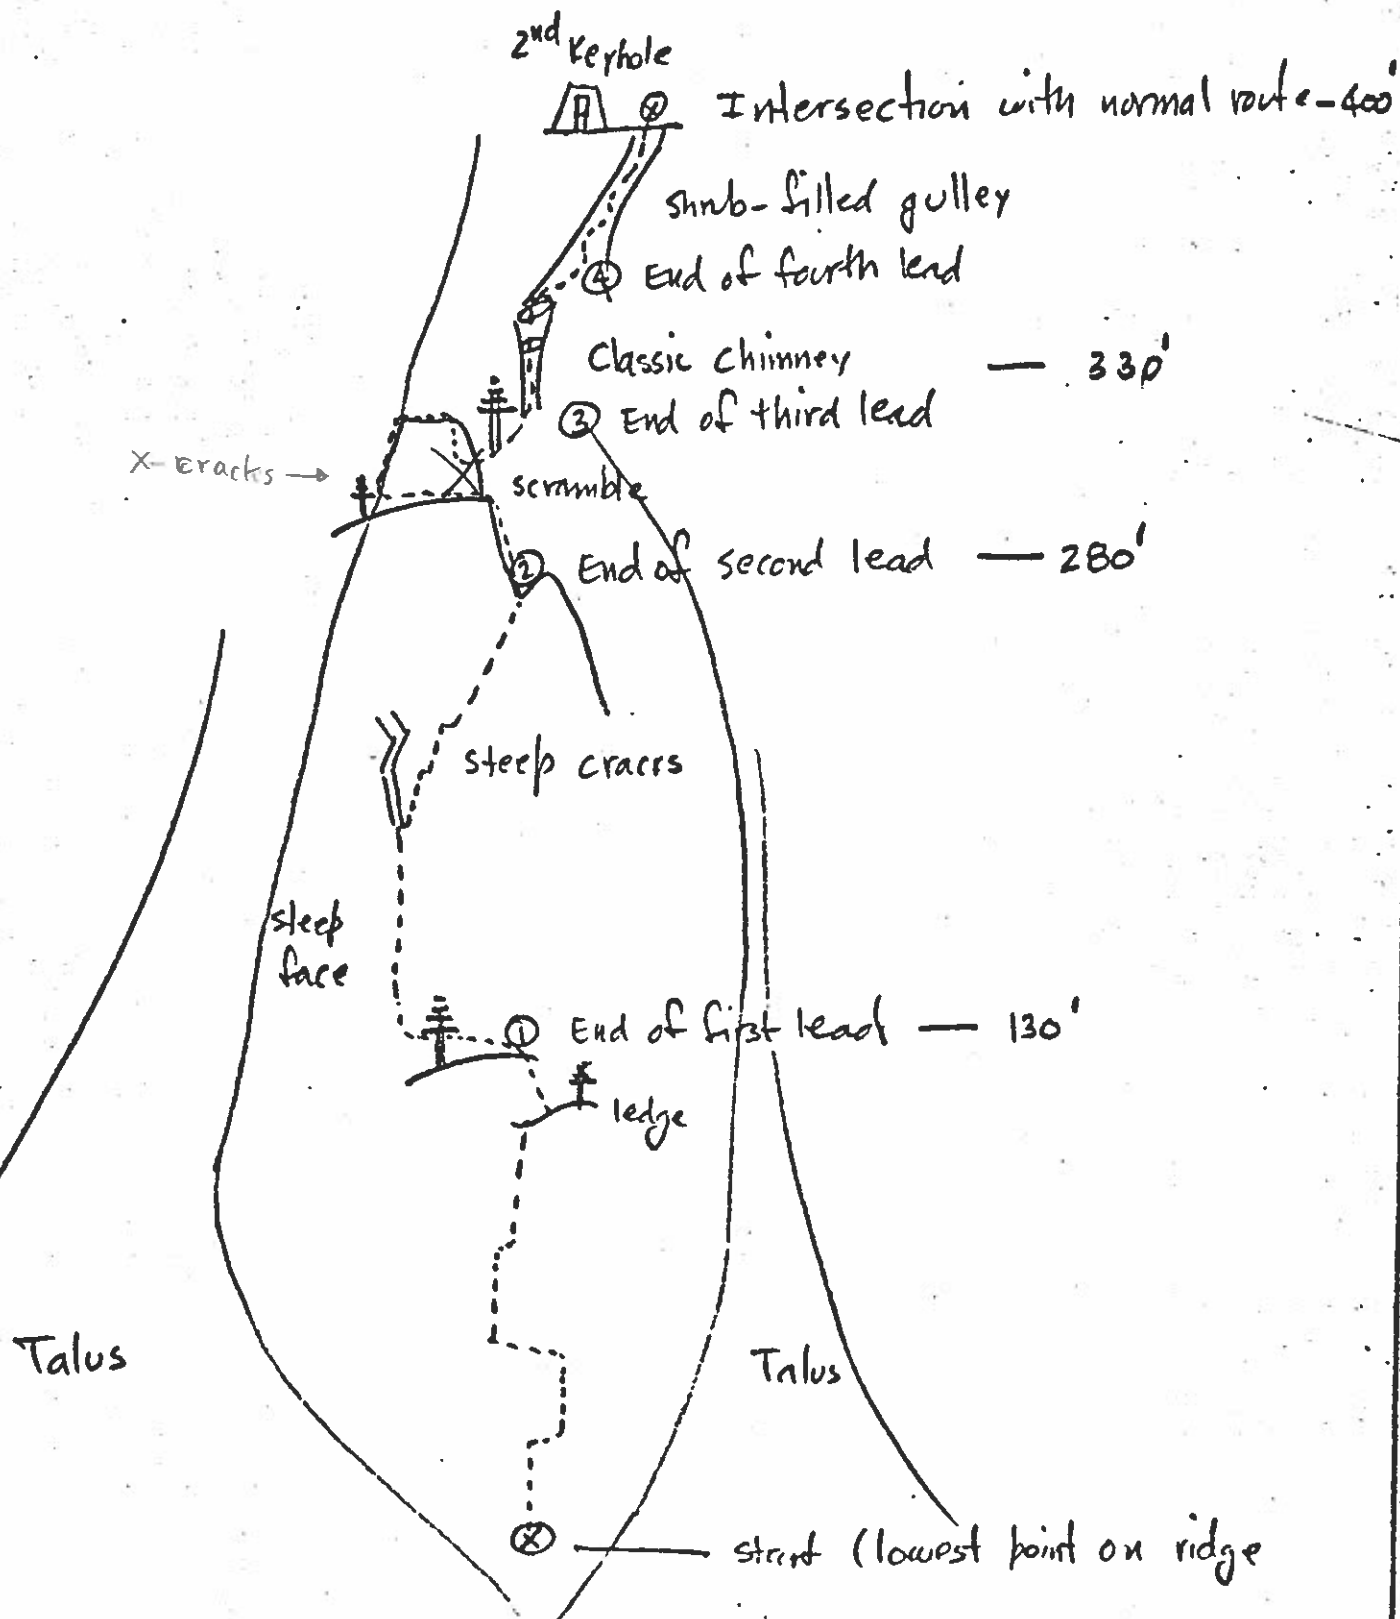 2nd Keyhole
Ⓧ Intersection with normal route - 400'
Shrub-filled gulley
④ End of fourth lead
Classic Chimney — 330'
③ End of third lead
X-cracks →
scramble
② End of second lead — 280'
steep cracks
steep
face
① End of first lead — 130'
ledge
Talus
Talus
Ⓧ — start (lowest point on ridge